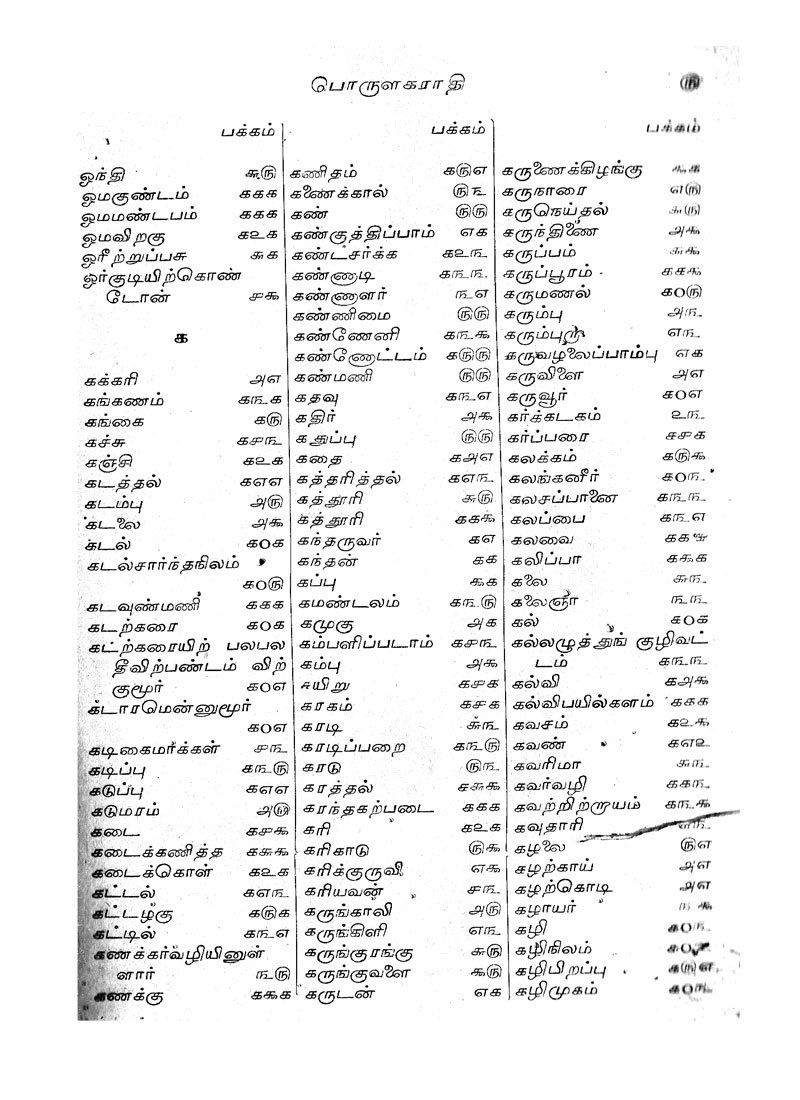 பொருளகராதி ௫
பக்கம்
ஓந்தி ௬௫
ஓமகுண்டம் ௧௧௧
ஓமமண்டபம் ௧௧௧
ஓமவிறகு ௧௨௧
ஓரீற்றுப்பசு ௬௧
ஓர்குடியிற்கொண்
டோன் ௪௯
க
கக்கரி ௮௭
கங்கணம் ௧௩௧
கங்கை ௧௫
கச்சு ௧௪௩
கஞ்சி ௧௨௧
கடத்தல் ௧௭௭
கடம்பு ௮௫
கடலை ௮௯
கடல் ௧0௧
கடல்சார்ந்தநிலம்
௧0௫
கடவுண்மணி ௧௧௧
கடற்கரை ௧0௧
கடற்கரையிற் பலபல
தீவிற்பண்டம் விற்
குமூர் ௧0௭
கடாரமென்னுமூர்
௧0௭
கடிகைமார்க்கள் ௪௩
கடிப்பு ௧௩௫
கடுப்பு ௧௭௭
கடுமரம் ௮௫
கடை ௧௪௯
கடைக்கணித்த ௧௬௯
கடைக்கொள் ௧௨௧
கட்டல் ௧௭௩
கட்டழகு ௧௫௧
கட்டில் ௧௩௭
கணக்கர்வழியினுள்
ளார் ௩௫
கணக்கு ௧௯௧
பக்கம்
கணிதம் ௧௫௭
கணைக்கால் ௫௩
கண் ௫௫
கண்குத்திப்பாம் ௭௧
கண்டசர்க்க ௧௨௩
கண்ணாடி ௧௩௩
கண்ணாளர் ௩௭
கண்ணிமை ௫௫
கண்ணேனி ௧௩௯
கண்ணோட்டம் ௧௫௫
கண்மணி ௫௫
கதவு ௧௩௭
கதிர் ௮௯
கதுப்பு ௫௫
கதை ௧௮௭
கத்தரித்தல் ௧௭௩
கத்தூரி ௬௫
கத்தூரி ௧௧௯
கந்தருவர் ௧௭
கந்தன் ௧௧
கப்பு ௯௧
கமண்டலம் ௧௩௫
கமுகு ௮௧
கம்பளிப்படாம் ௧௪௩
கம்பு ௮௯
கயிறு ௧௪௧
கரகம் ௧௪௧
கரடி ௬௩
கரடிப்பறை ௧௩௫
கரடு ௫௩
கரத்தல் ௧௬௯
கரந்தகற்படை ௧௧௧
கரி ௧௨௧
கரிகாடு ௫௯
கரிக்குருவி ௭௯
கரியவன் ௪௩
கருங்காலி ௮௫
கருங்கிளி ௭௩
கருங்குரங்கு ௬௫
கருங்குவளை ௯௫
கருடன் ௭௧
பக்கம்
கருணைக்கிழங்கு ௯௧
கருநாரை ௭௫
கருநெய்தல் ௯௫
கருந்திணை ௮௯
கருப்பம்
கருப்பூரம் ௧௧௯
கருமணல் ௧0௫
கரும்பு ௮௩
கரும்புறா ௭௩
கருவழலைப்பாம்பு ௭௧
கருவிளை ௮௭
கருவூர் ௧0௭
கர்க்கடகம் ௨௩
கர்ப்பரை ௧௪௧
கலக்கம் ௧௫௯
கலங்கனீர் ௧0௩
கலசப்பானை ௧௩௩
கலப்பை ௧௩௭
கலவை ௧௧௯
கலிப்பா ௧௯௧
கலை ௬௩
கலைஞர் ௩௩
கல் ௧0௧
கல்லழுத்துங் குழிவட்
டம் ௧௩௩
கல்வி ௧௮௯
கல்விபயில்களம் ௧௧௧
கவசம் ௧௨௯
கவண் ௧௭௨
கவரிமா ௬௩
கவர்வழி ௧௧௩
கவற்றிற்றாயம் ௧௩௯
கவுதாரி ௭௩
கழலை ௫௭
கழற்காய் ௮௭
கழற்கொடி ௮௭
கழாயர்
கழி ௧0௩
கழிநிலம்
கழிபிறப்பு ௧௫௭
கழிமுகம் ௧0௩